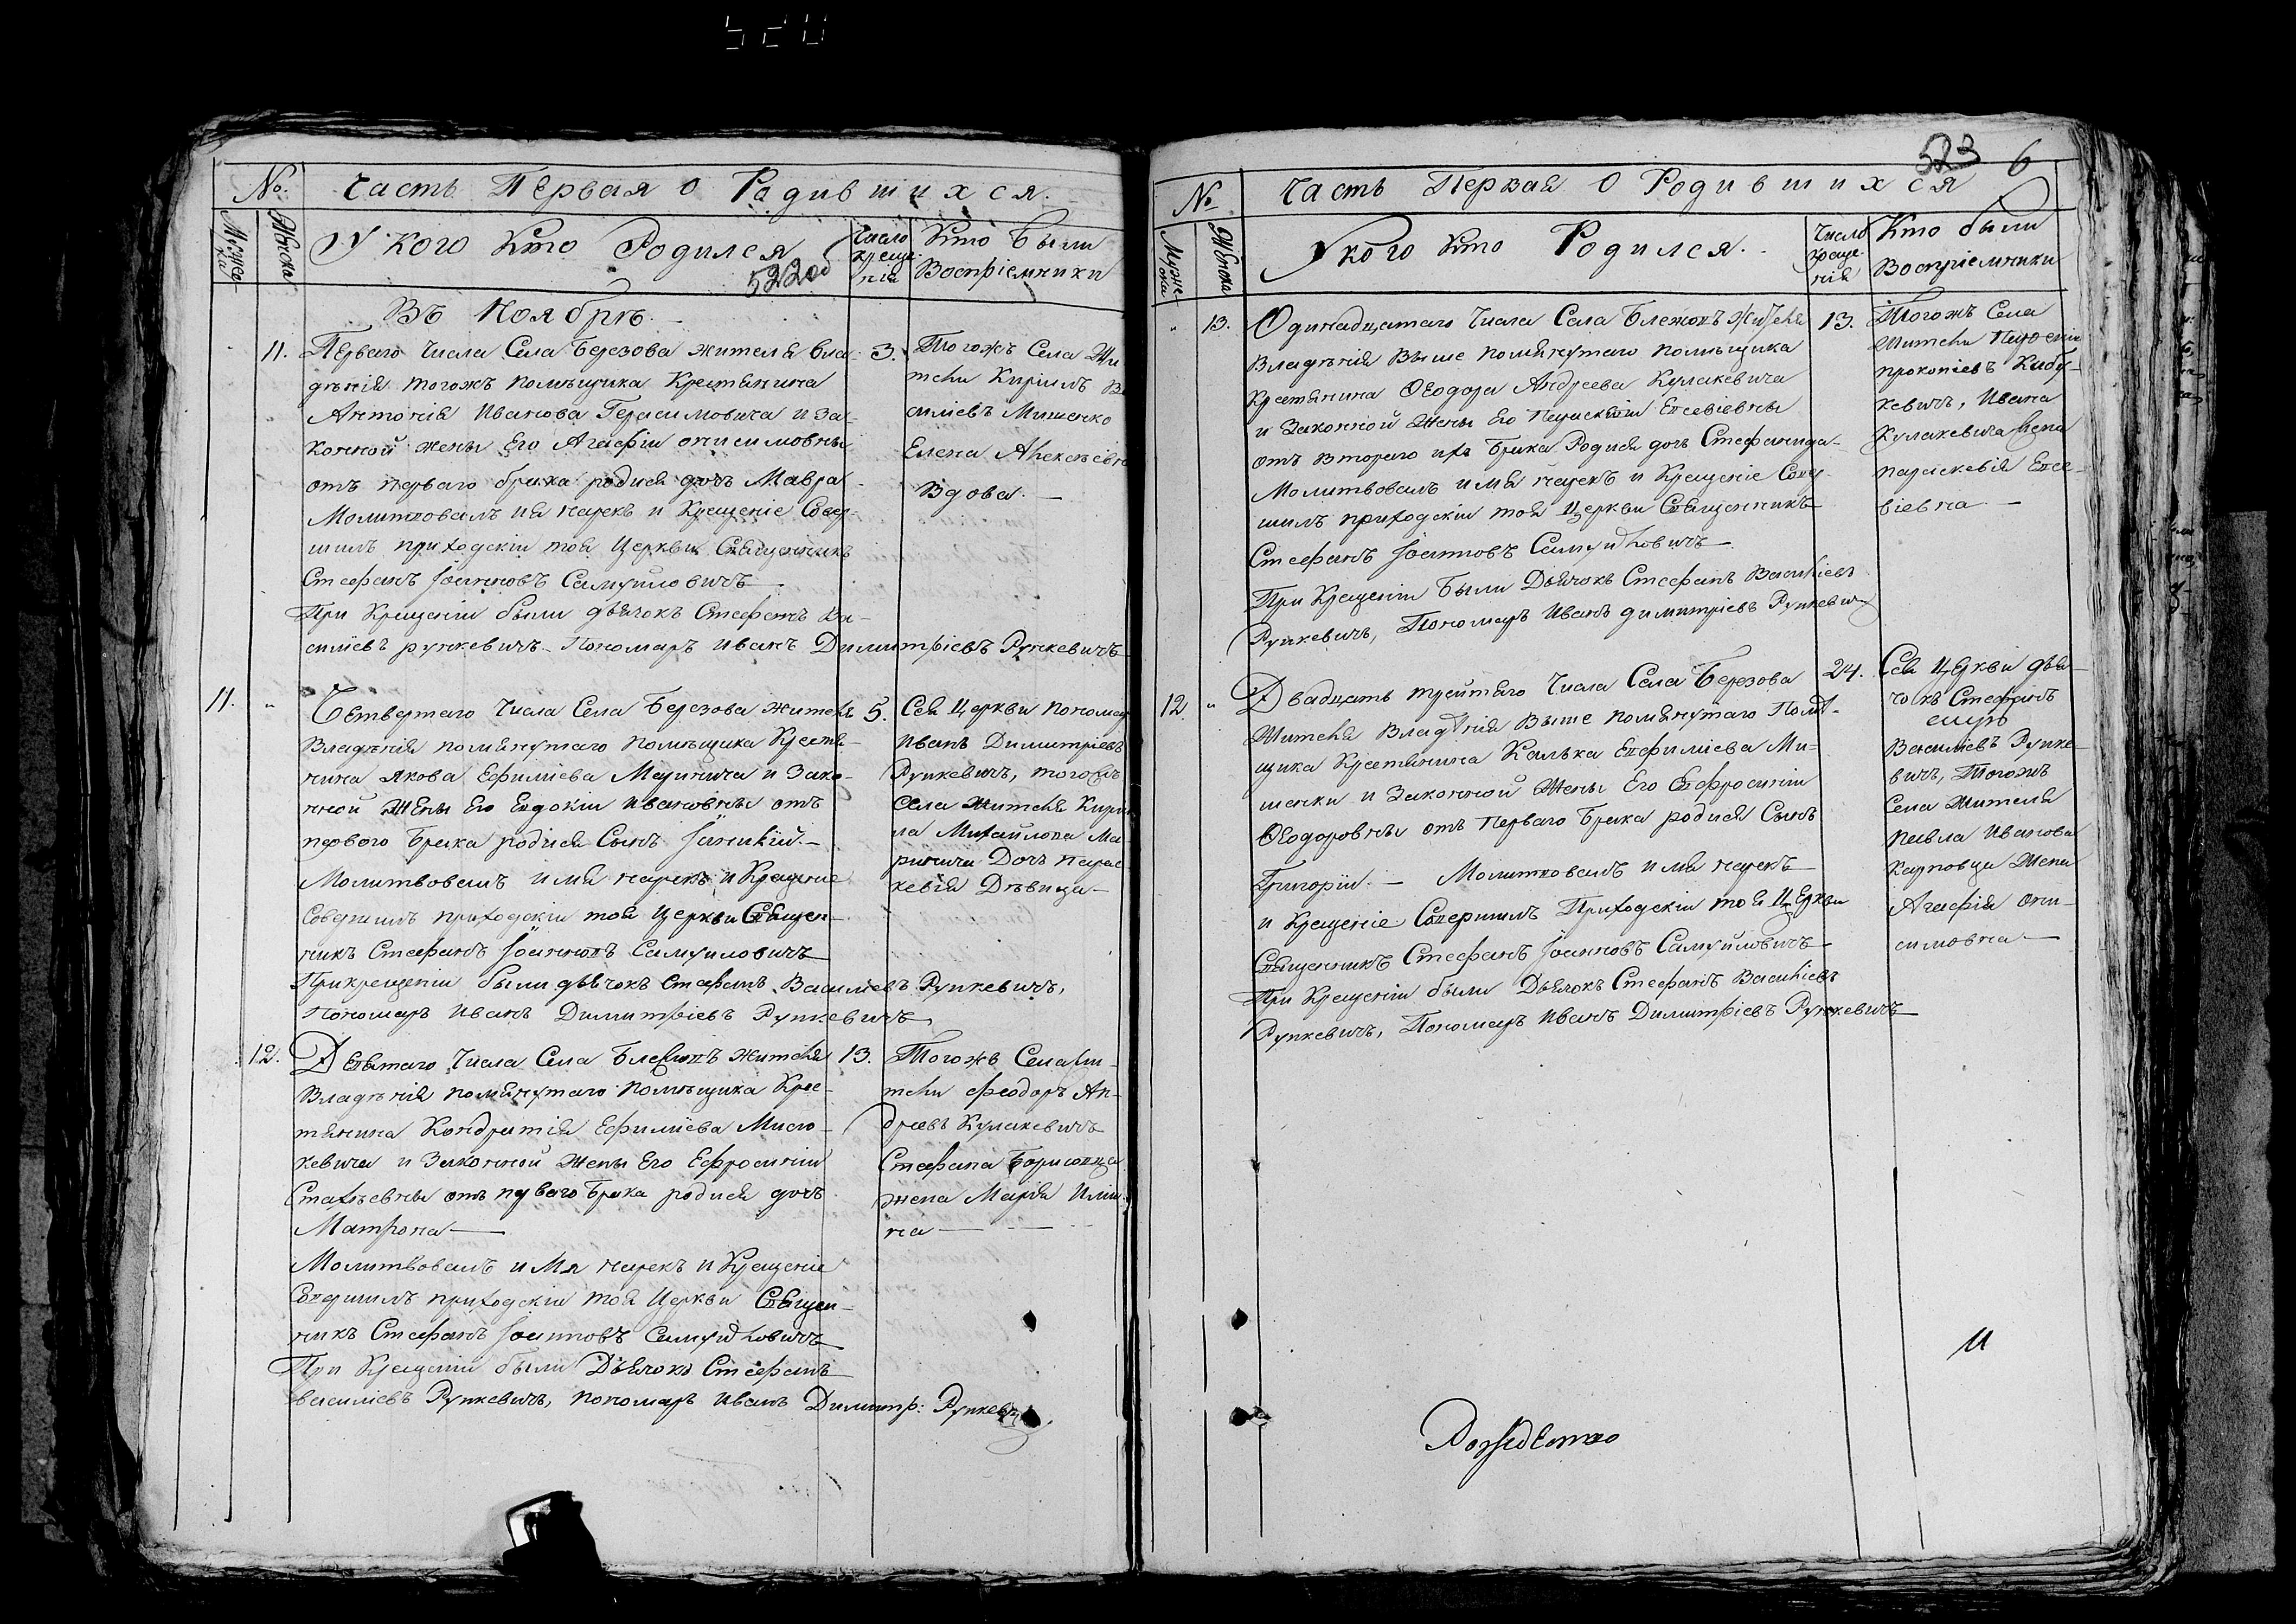 №. Часть Первая о Радившихся.
Мужеска
Женска
У кого кто Родился
Число крещения
Кто были Воспріемники
522об
Въ Ноябрѣ.
11. Перваго Числа Села Березова жителя вла-
дѣнія тогожъ помѣщика Крестянина
Антонія Иванова Герасимовича и за-
конной жены Его Агафіи онисимовны
отъ перваго брака родися дочь Мавра
Молитвовалъ имя нарекъ и Крещеніе Совер-
шилъ приходскіи тоя Церкви Священникъ
Стефанъ Іоанновъ Самуйловичъ
При Крещеніи были дьячокъ Стефанъ Ва-
силіевъ рункевичъ. Пономаръ иванъ Димитріевъ Рункевичъ
3. Тогожъ Села Жи
тели Кирилъ Ва
силіевъ Мишенко
Елена Алексѣевна
Вдова.
11. „ Четвертаго Числа Села Березова жителя
Владѣнія помянутаго помѣщика Крестя-
нина Якова Ефиміева Маринича и Зако-
нной Жены Его Евдокіи ивановны отъ
первого Брака родися Сынъ Іаникій.
Молитвовалъ имя нарекъ и Крещение
Совершилъ приходскіи тоя Церкви Священ-
никъ Стефанъ Іоанновъ Самуиловичъ
При крещеніи были дьячокъ Стефанъ Василіевъ Рункевичъ,
Пономаръ иванъ Димитріевъ Рункевичъ
5. Сея Церкви пономаръ
Иванъ Димитріевъ
Рункевичъ, тогожъ
села жителя Кири
ла Михайлова Ма-
ринича Дочь параc
кевія Дѣвица
12. Девятаго Числа Села Блежовъ жителя
Владѣнія помянутаго помѣщика Крес-
тянина Кондратія Ефиміева Мисю-
кевича и Законной жены Его Ефросиніи
Стахѣевны отъ перваго Брака родися дочь
Матрона
Молитвовалъ имя нарекъ и Крещеніе
Совершилъ приходскіи тоя Церкви Священ-
никъ Стефанъ Іоанновъ Самуиловичъ
При Крещеніи были Дьячокъ Стефанъ
василіевъ Рункевичъ, пономаръ иванъ Димитр: Рункевич.
13. Тогожъ Села жи-
тели Феодоръ Ан-
дреевъ Кулакевичъ
Стефана Борисовца
жена Марія Илии-
на
523 6
№ Часть Первая о Родившихся
Мужеска
Женска
У кого кто Родился.
Число крещения
Кто были Воспріемники
„ 13. Одинадцатаго Числа Села Блежовъ Жителя
Владѣнія Выше помянутаго помѣщика
Крестянина Ѳеодора Андреева Кулакевича
и Законной Жены Его Параскевіи Евсевіевны
отъ втораго ихъ Брака Родися дочь Стефанида
Молитвовалъ имя нарекъ и Крещеніе Совер-
шилъ приходскіи тоя Церкви Священникъ
Стефанъ Іоанновъ Самуиловичъ
При Крещеніи Были Дьячокъ Стефанъ Василіевъ
Рункевичъ, Пономаръ Иванъ димитріевъ Рункевич
13. Тогожъ Села
Жители
прокопіевъ
кевичъ, Ивана
Кулакевича жена
параскевія Евсе-
віевна
12. „ Двадцать третяго Числа Села Березова
Жителя Владѣнія Выше помянутаго Помѣ-
щика Крестянина Евфиміева Ми-
шенки и Законной Жены Его Евфросиніи
Ѳеодоровны отъ перваго Брака родися Сынъ
Григоріи. Молитвовалъ имя нарекъ
и Крещеніе Совершилъ Приходскіи тоя Церкви
Священникъ Стефанъ Іоанновъ Самуйловичъ
При Крещеніи были Дьячокъ Стефанъ Василіевъ
Рункевичъ, Пономаръ Иванъ Димитріевъ Рункевичъ
24. Сея Церкви дья-
чокъ Стефанъ
Василіевъ Рунке-
вичъ, Тогожъ
Села Жителя
павла Иванова
Карповца Жена
Агафія они-
симовна